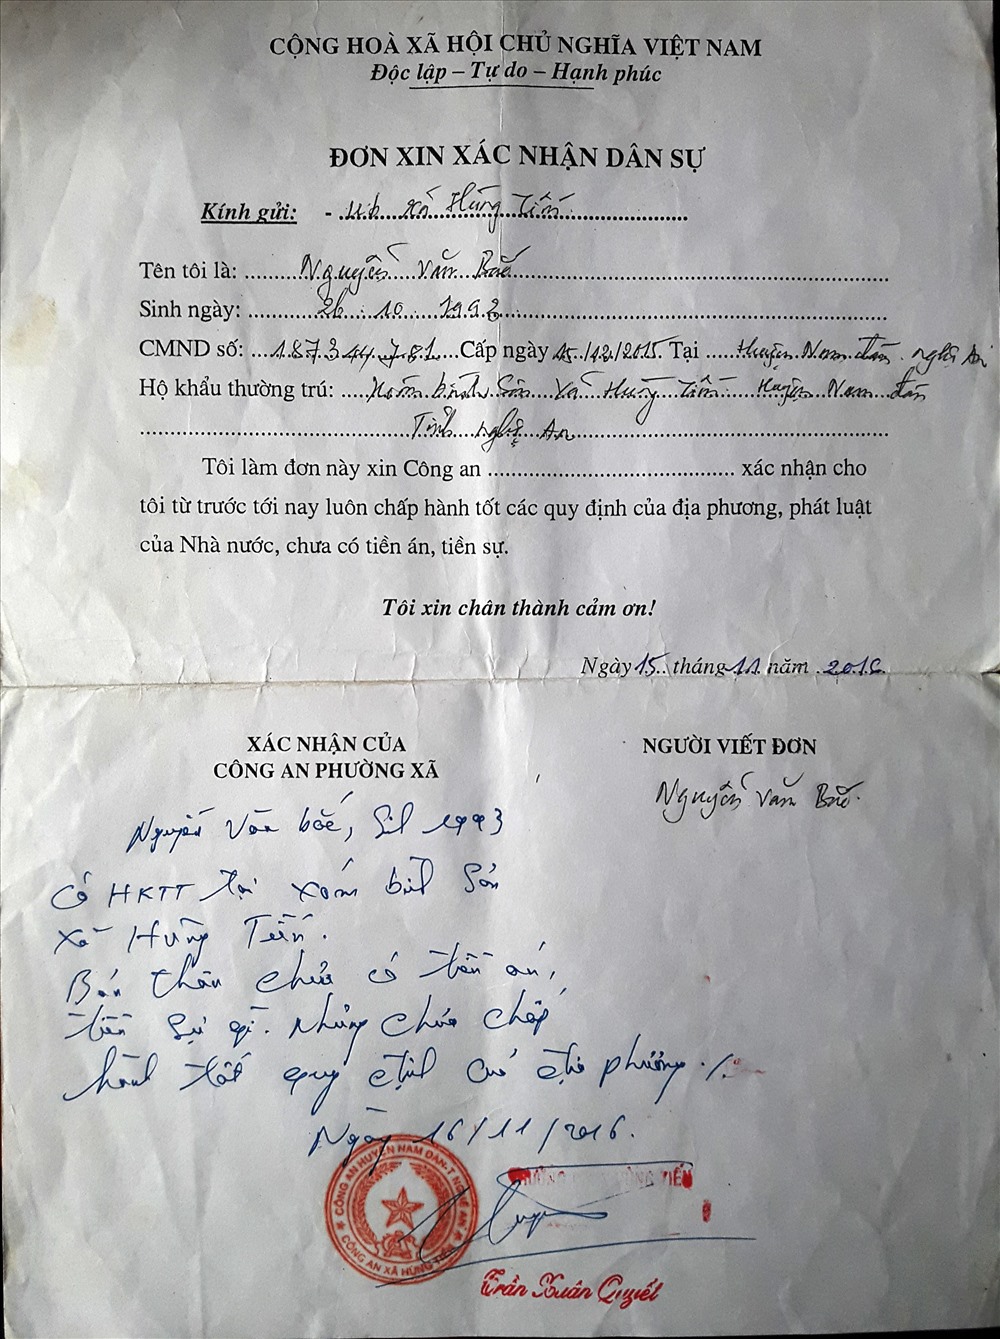 CỘNG HOÀ XÃ HỘI CHỦ NGHĨA VIỆT NAM
Độc lập – Tự do – Hạnh phúc
ĐƠN XIN XÁC NHẬN DÂN SỰ
Kính gửi: - .u.b...xã Hùng Tiến...
Tên tôi là: ........Nguyễn văn Bắc........
Sinh ngày: ........26...10...1993........
CMND số: ...187344781...Cấp ngày 15/12/2015. Tại .....Huyện Nam đàn nghệ An
Hộ khẩu thường trú: ....Xóm bình Sơn Xã Hùng Tiến Huyện Nam đàn
........Tỉnh nghệ An........
Tôi làm đơn này xin Công an ........ xác nhận cho
tôi từ trước tới nay luôn chấp hành tốt các quy định của địa phương, phát luật
của Nhà nước, chưa có tiền án, tiền sự.
Tôi xin chân thành cảm ơn!
Ngày 15 tháng 11 năm 2016
XÁC NHẬN CỦA
CÔNG AN PHƯỜNG XÃ
NGƯỜI VIẾT ĐƠN
Nguyễn văn Bắc
Nguyễn Văn bắc, 1993
Có HKTT tại xóm bình Sơn
Xã Hùng Tiến.
Bản thân chưa có tiền án,
tiền sự gì. Nhưng chưa chấp
hành tốt quy định của địa phương ./.
Ngày 16/11/2016.
CÔNG AN HUYỆN NAM ĐÀN-T NGHỆ AN
CÔNG AN XÃ HÙNG TIẾN
Trần Xuân Quyết